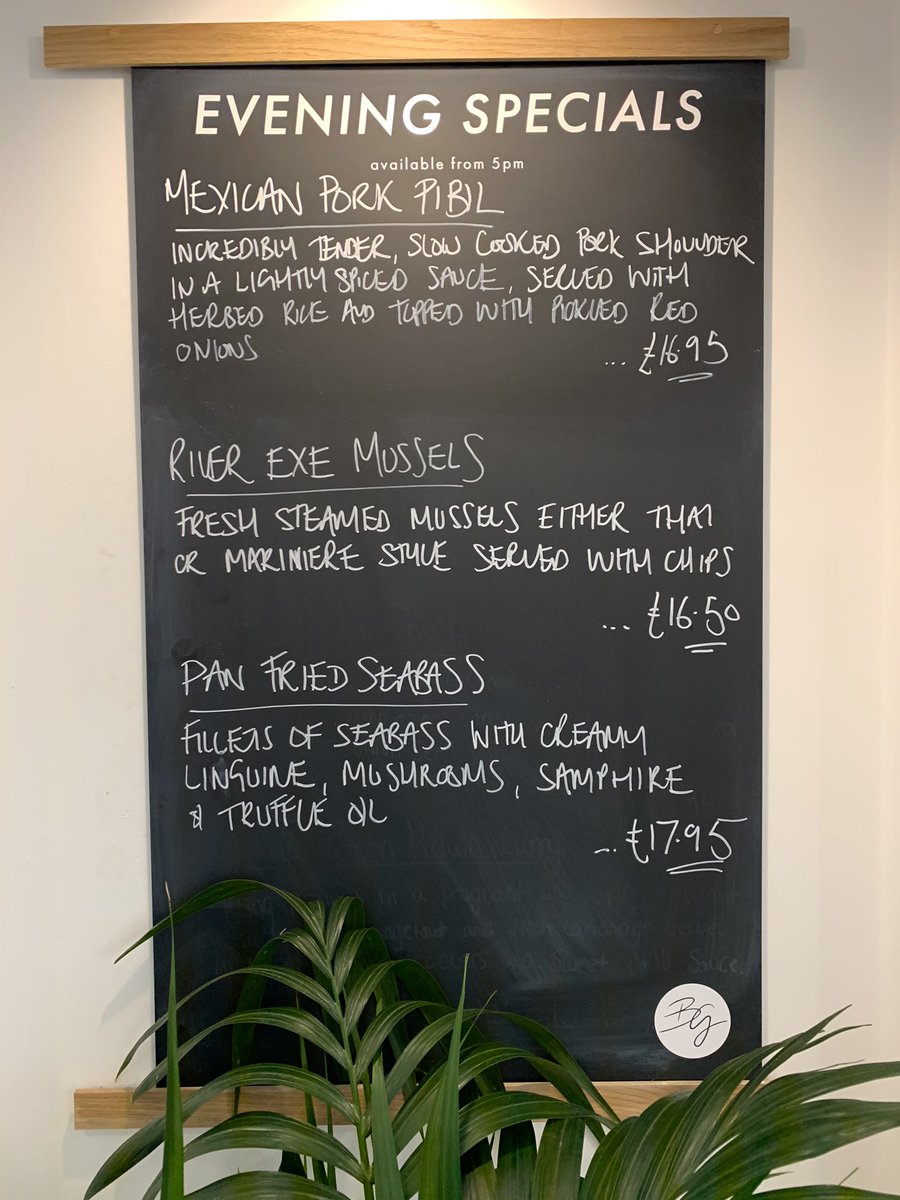 EVENING SPECIALS
available from 5pm
MEXICAN PORK PIBIL
INCREDIBLY TENDER, SLOW COOKED PORK SHOULDER
IN A LIGHTLY SPICED SAUCE, SERVED WITH
HERBED RICE AND TOPPED WITH PICKLED RED
ONIONS
... £16.95
RIVER EXE MUSSELS
FRESH STEAMED MUSSELS EITHER THAI
OR MARINIERE STYLE SERVED WITH CHIPS
... £16.50
PAN FRIED SEABASS
FILLETS OF SEABASS WITH CREAMY
LINGUINE, MUSHROOMS, SAMPHIRE
& TRUFFLE OIL
... £17.95